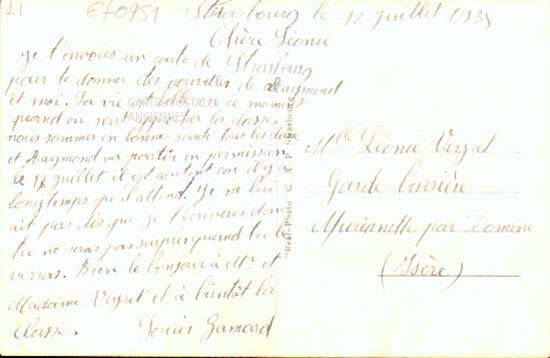 L1
670951
Strasbourg le 12 juillet 1935
Chère Léonie
Je t'envoies un carte de Strasbourg
pour te donner des nouvelles de Raymond
et moi. La vie est belle en ce moment
quand on sent approcher la classe
nous sommes en bonne santé tous les deux
et Raymond va partir en permission
le juillet il est content car il y a
longtemps qu'il attend. Je ne lui
ait pas dis que je t'écriveres donc
tu ne seras pas surpris quand tu le
verras. Bien le bonjour à Mr et
Madame Veyret et à bientôt la
Classe. Louis Gamard
CARTES POSTALES
ANCIENNES
"Real-Photo" C. A. P. Strasbourg
Mlle Léonie Veyret
Garde barrière
Murianette par Domène
(Isère)